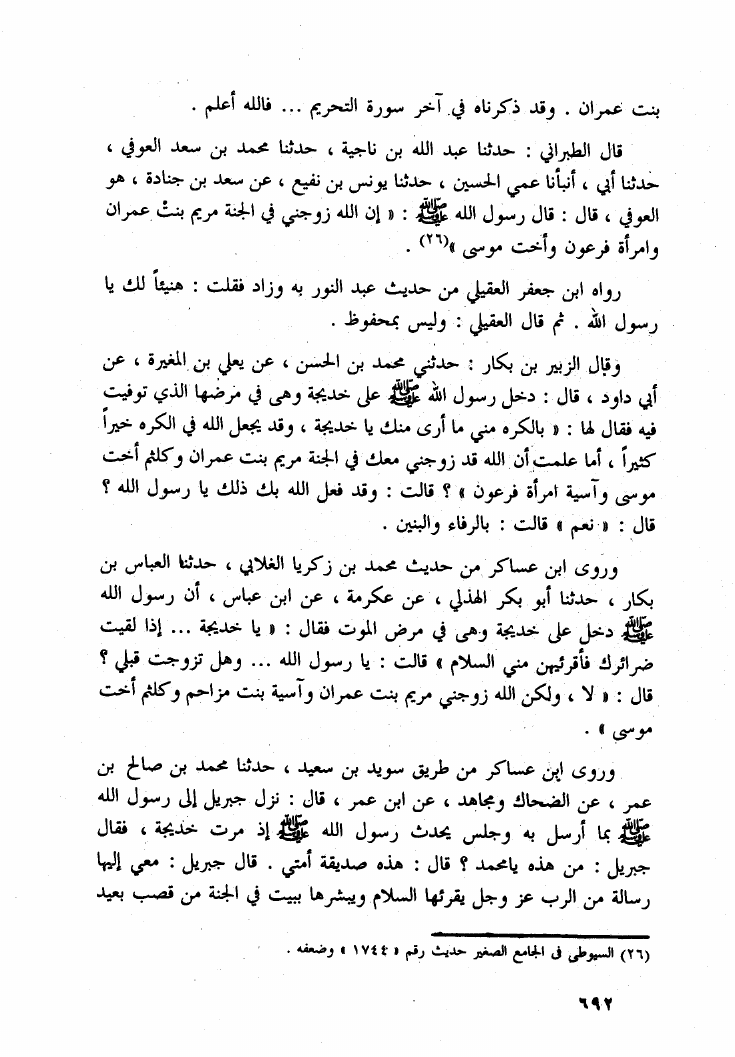 بنت عمران . وقد ذكرناه في آخر سورة التحريم ... فالله أعلم .
قال الطبراني : حدثنا عبد الله بن ناجية ، حدثنا محمد بن سعد العوفي ،
حدثنا أبي ، أنبأنا عمي الحسين ، حدثنا يونس بن نفيع ، عن سعد بن جنادة ، هو
العوفي ، قال : قال رسول الله ﷺ : « إن الله زوجني في الجنة مريم بنتْ عمران
وامرأة فرعون وأخت موسى »(٢٦) .
رواه ابن جعفر العقيلي من حديث عبد النور به وزاد فقلت : هنيئاً لك يا
رسول الله . ثم قال العقيلي : وليس بمحفوظ .
وقال الزبير بن بكار : حدثني محمد بن الحسن ، عن يعلي بن المغيرة ، عن
أبي داود ، قال : دخل رسول الله ﷺ على خديجة وهى في مرضها الذي توفيت
فيه فقال لها : « بالكره مني ما أرى منك يا خديجة ، وقد يجعل الله في الكره خيراً
كثيراً ، أما علمت أن الله قد زوجني معك في الجنة مريم بنت عمران وكلثم أخت
موسى وآسية امرأة فرعون » ؟ قالت : وقد فعل الله بك ذلك يا رسول الله ؟
قال : « نعم » قالت : بالرفاء والبنين .
وروى ابن عساكر من حديث محمد بن زكريا الغلابي ، حدثنا العباس بن
بكار ، حدثنا أبو بكر الهذلي ، عن عكرمة ، عن ابن عباس ، أن رسول الله
ﷺ دخل على خديجة وهى في مرض الموت فقال : « يا خديجة ... إذا لقيت
ضرائرك فأقرئيهن مني السلام » قالت : يا رسول الله ... وهل تزوجت قبلي ؟
قال : « لا ، ولكن الله زوجني مريم بنت عمران وآسية بنت مزاحم وكلثم أخت
موسى » .
وروى ابن عساكر من طريق سويد بن سعيد ، حدثنا محمد بن صالح بن
عمر ، عن الضحاك ومجاهد ، عن ابن عمر ، قال : نزل جبريل إلى رسول الله
ﷺ بما أرسل به وجلس يحدث رسول الله ﷺ إذ مرت خديجة ، فقال
جبريل : من هذه يامحمد ؟ قال : هذه صديقة أمتي . قال جبريل : معي إليها
رسالة من الرب عز وجل يقرئها السلام ويبشرها ببيت في الجنة من قصب بعيد
(٢٦) السيوطى فى الجامع الصغير حديث رقم « ١٧٤٤ » وضعفه .
٦٩٢